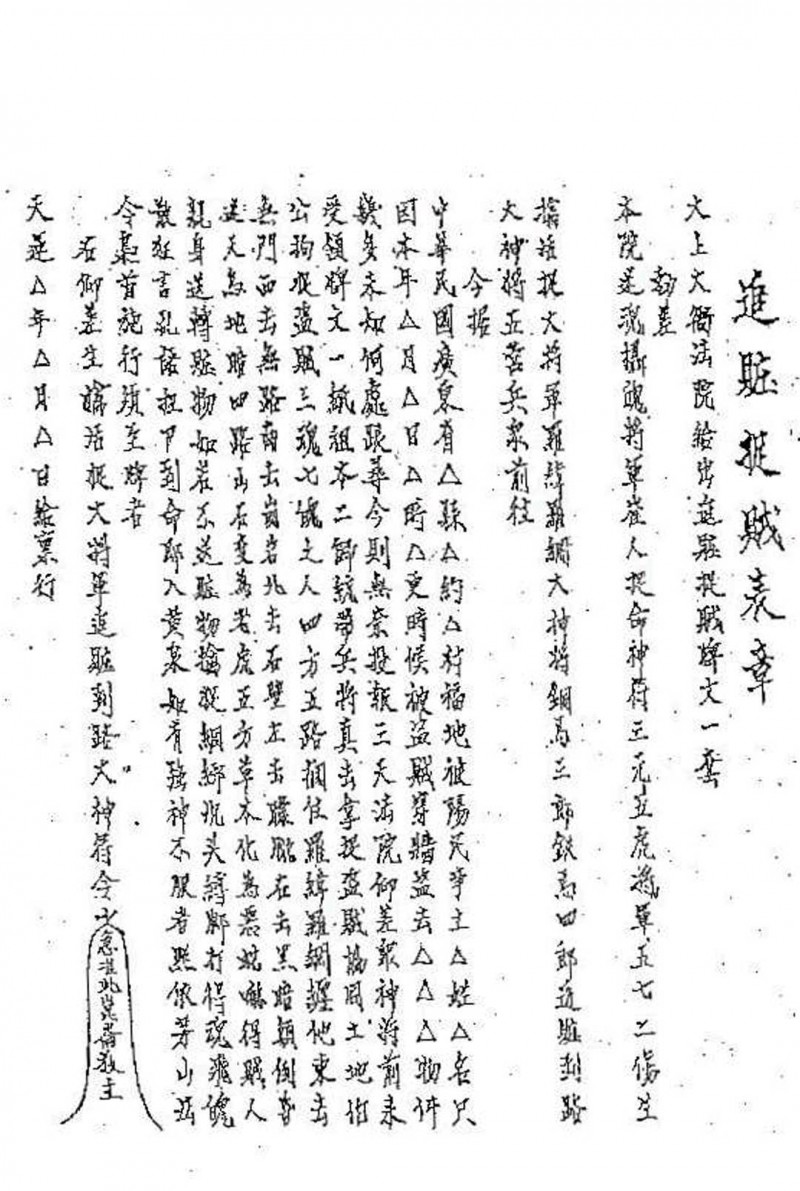 追賍捉賊表章
太上大衙法院給出追賍捉賊牌文一套
勅差
本院追魂攝魄將軍崔人捉命神符三元五虎將軍五七二傷生
擒活捉大將軍羅緯羅網大神將銅馬三郎鉄馬四郎追賍到路
大神將五营兵衆前往
今据
中華民国廣東有△縣△約△村福地被陽民事主△姓△名只
因本年△月△日△時△更時候被盗賊穿牆盗去△△△物件
幾多未知何處跟尋今則無奈投報三天法院仰差衆神將前来
受領牌文一紙祖本二師統帶兵將真去拿捉盗賊協同土地伯
公拘捉盗賊三魂七魄之人四方五路捆住羅緯羅網纏他東去
無門西去無路南去崗岩北去石壁左去朦朧右去黑暗顛倒昏
迷天為地暗四路山石变為若虎五方草木化為悪蛇嚇得賊人
親身送轉賍物如若不送賍物擒捉綑綁扎头縛脚打得魂飛魄
散狂言乱語担下到命即入黄泉如有強神不服者照依芳山法
令梟首施行須至牌者
右仰差生擒活捉大將軍追賍到路大神符令
急准此崑崙教主
天运△年△月△日給禀行